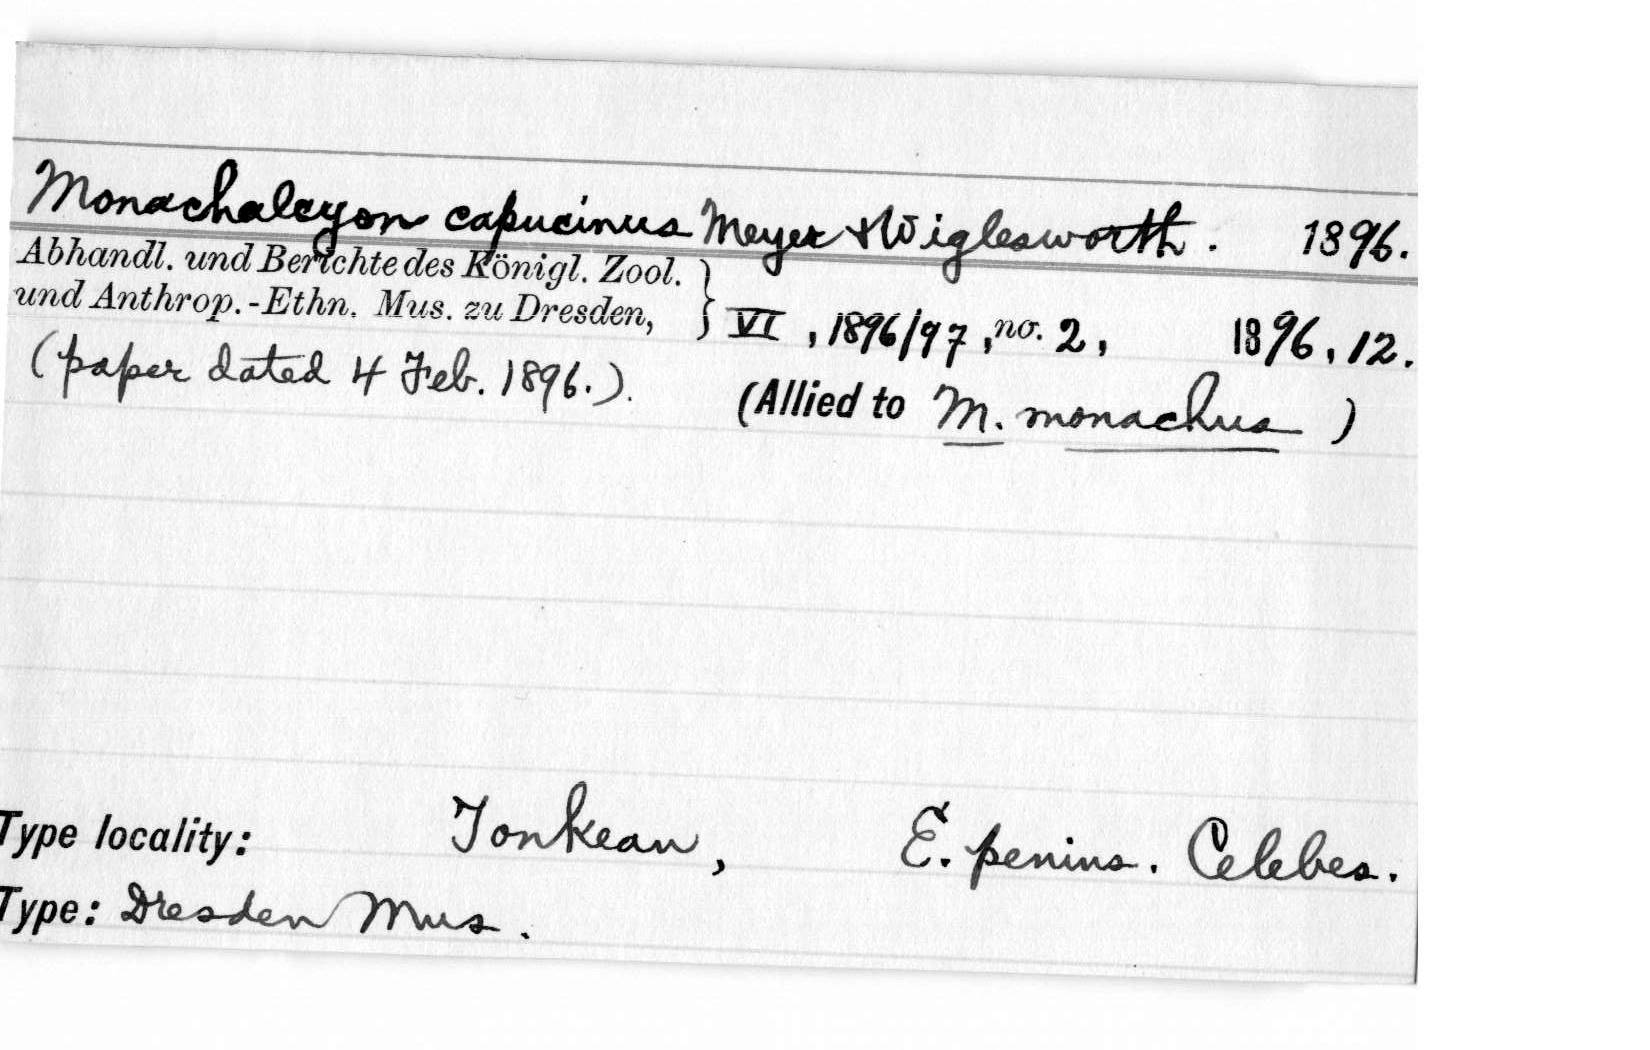 Monachalcyon capucinus Meyer & Wiglesworth. 1896.
Abhandl. und Berichte des Königl. Zool.
und Anthrop.-Ethn. Mus. zu Dresden, } VI, 1896/97, no. 2, 1896, 12.
(paper dated 4 Feb. 1896.). (Allied to M. monachus)
Type locality: Tonkean, E. penins. Celebes.
Type: Dresden Mus.